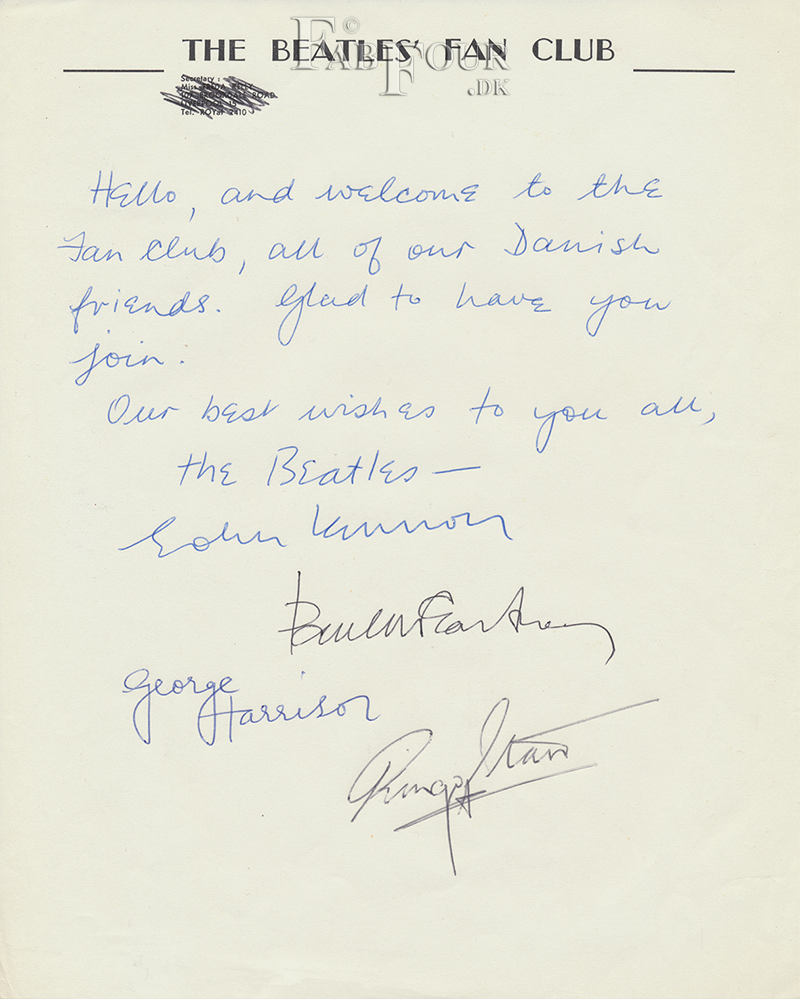 THE BEATLES' FAN CLUB
© FAB FOUR .DK
Secretary :
Miss FREDA KELLY
LIVERPOOL 15
Tel. ROYal 2410
Hello, and welcome to the
Fan Club, all of our Danish
friends. Glad to have you
join.
Our best wishes to you all,
the Beatles —
John Lennon
Paul McCartney
George
Harrison
Ringo Starr